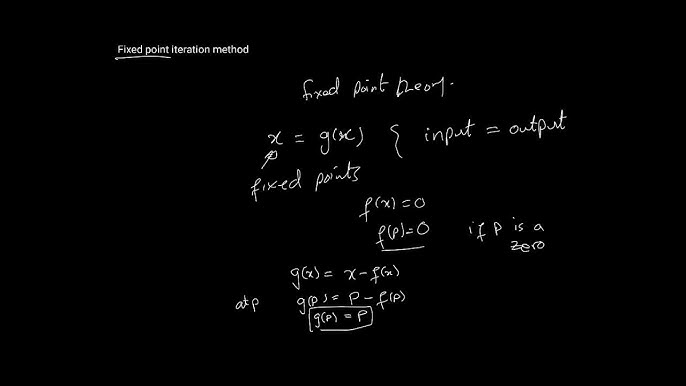 Fixed point iteration method
fixed point theory.
x = g(x) { input = output
fixed points
f(x)=0
f(p)=0 if P is a
zero
g(x) = x-f(x)
at p g(p) = P - f(p)
g(p) = P